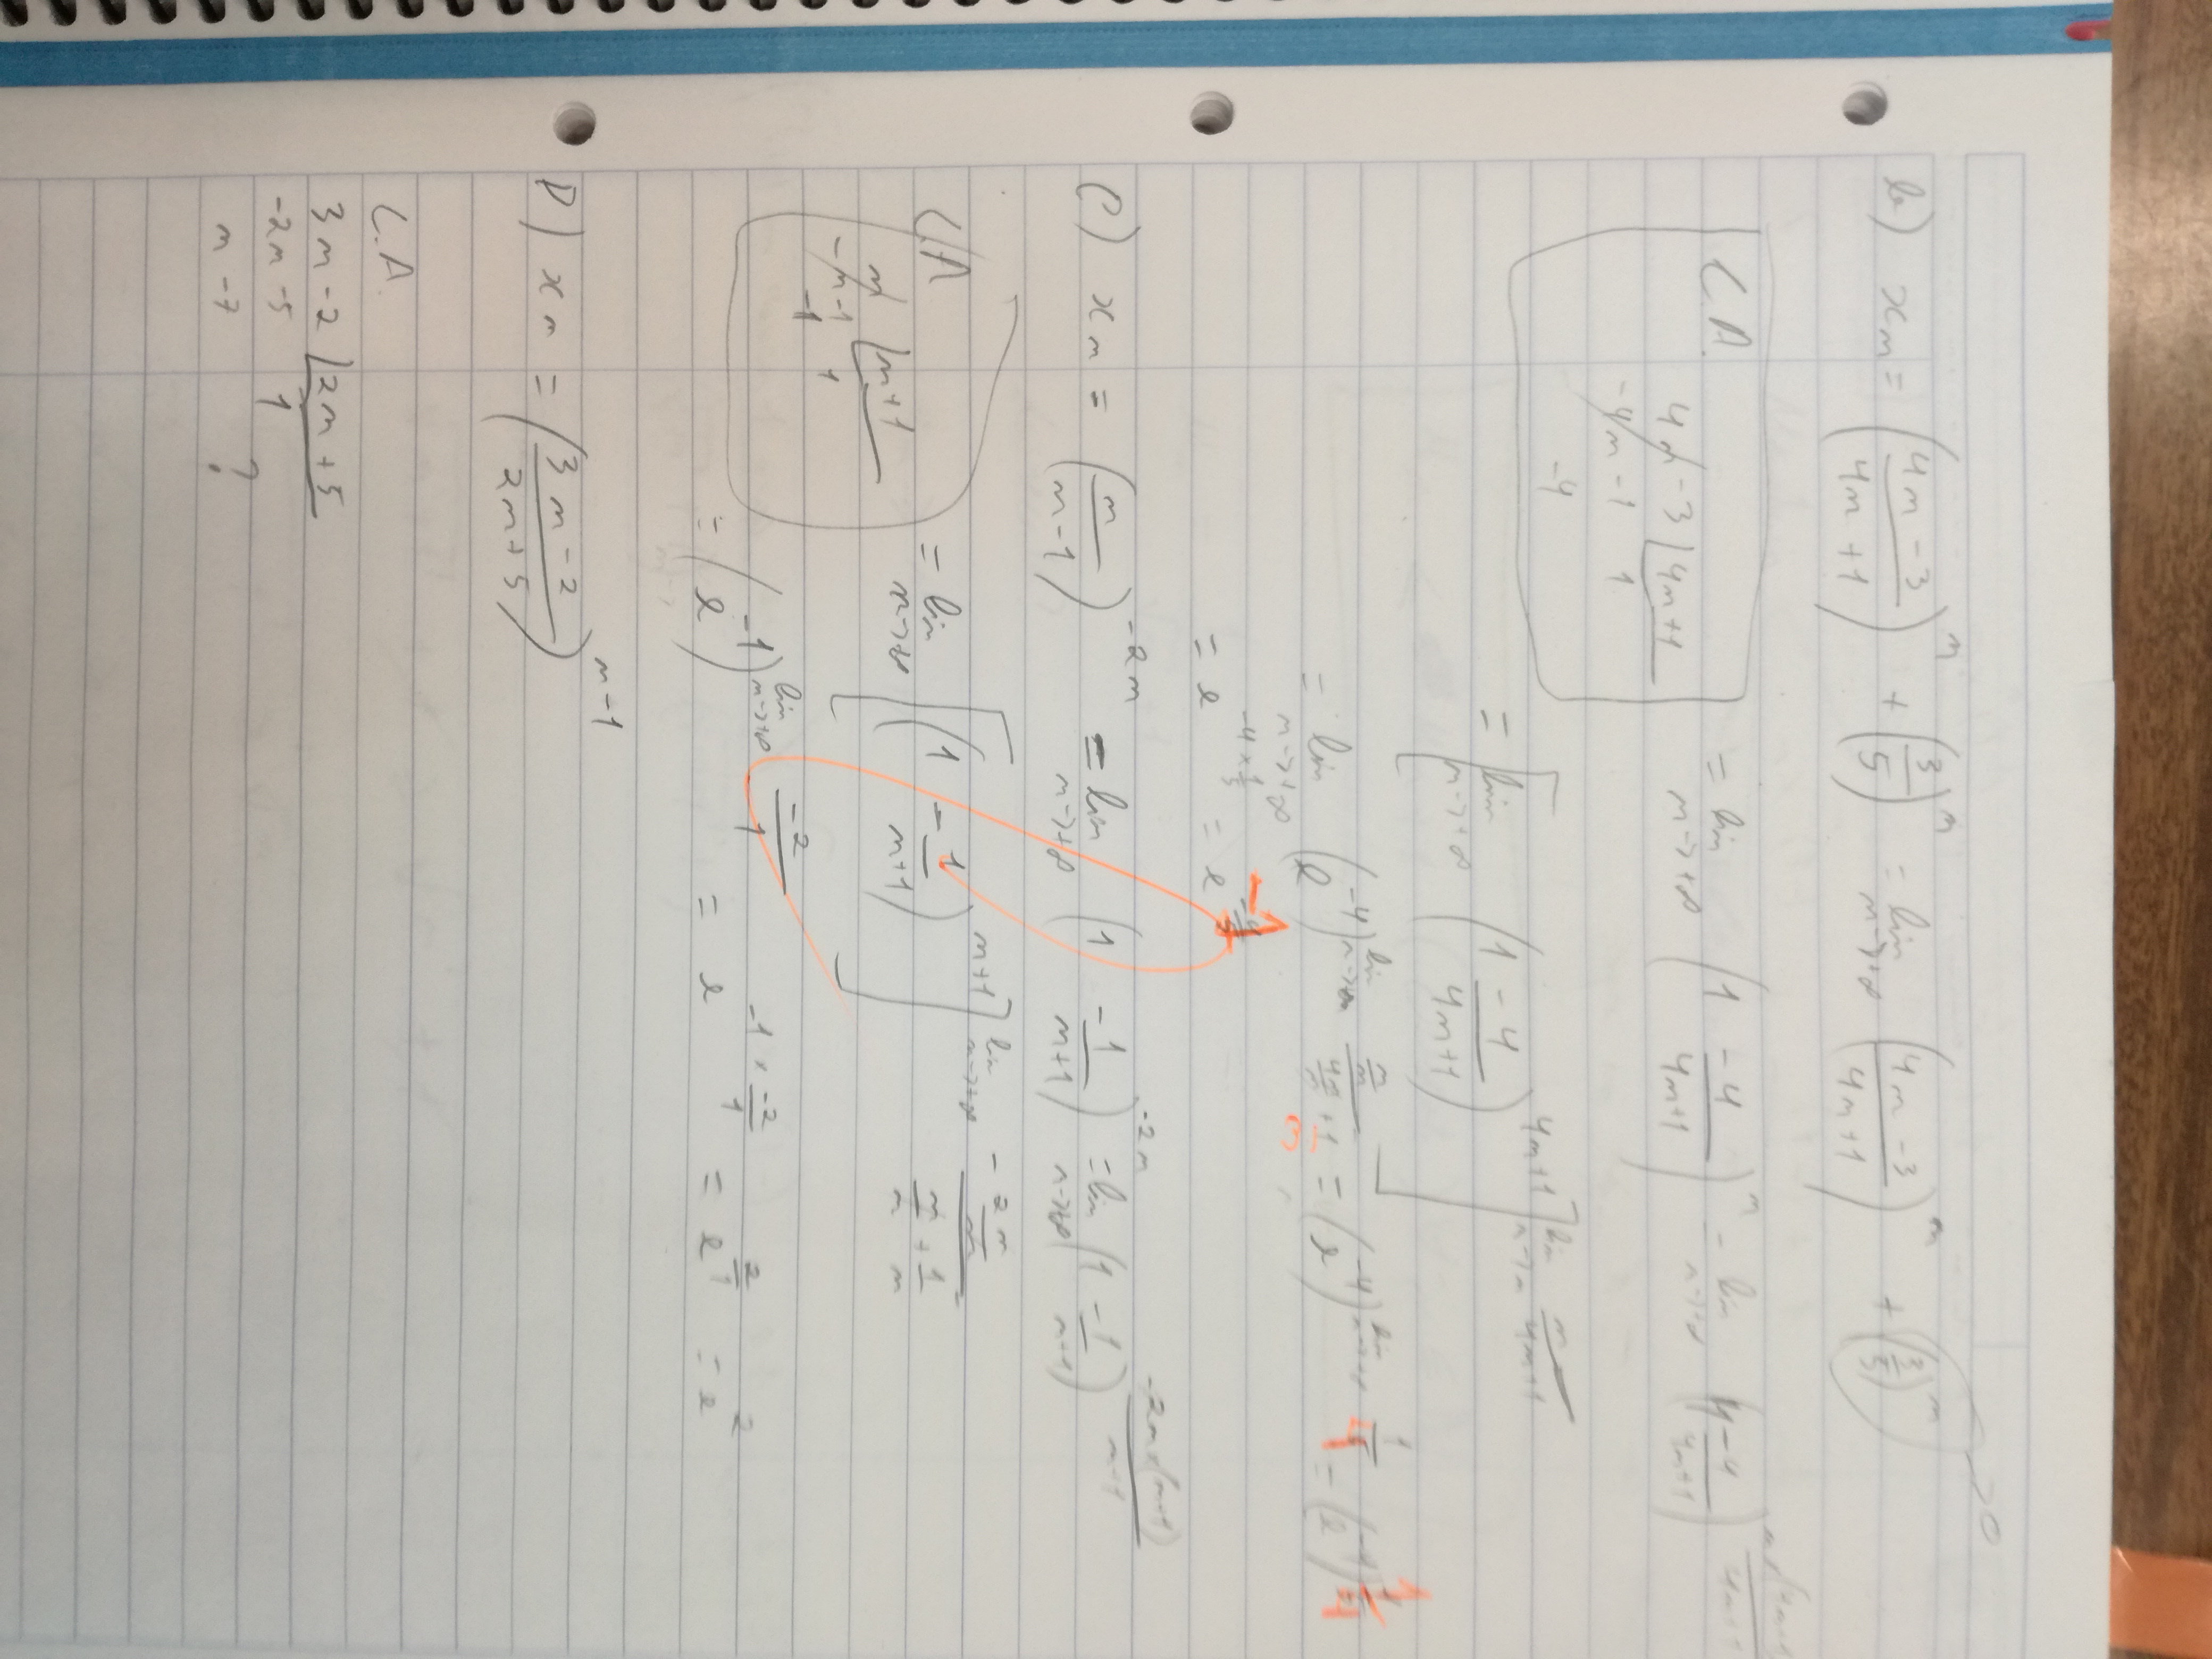 b) xn = (4n-3/4n+1)^n + (3/5)^n = lim n→+∞ (4n-3/4n+1)^n + (3/5)^n →0
C.A.
4n-3 |4n+1
-4n-1 1
-4
= lim n→+∞ (1 -4/4n+1)^n = lim n→+∞ (1-4/4n+1)
= [lim n→+∞ (1-4/4n+1)^4n+1]^lim n/4n+1
= lim n→+∞ (e^-4)^lim n→+∞ n/n / 4n/n + 1/n = (e^-4)^lim 1/4 = (e^-4)^1/4
= e^-4×1/5 = e^-4/5 -1
C) xn = (n/n-1)^-2n = lim n→+∞ (1 -1/n+1)^-2n = lim n→+∞ (1 -1/n+1)^-2n×(n+1)/n+1
C.A
n |n+1
-n-1 1
-1
= lim n→+∞ [(1 -1/n+1)^n+1]^lim n→+∞ -2n/n / n/n + 1/n
= (e^-1)^lim n→+∞ -2/1 = e^-1×-2/1 = e^2/1 = e^2
D) xn = (3n-2/2n+5)^n-1
C.A.
3n-2 |2n+5
-2n-5 1
n-7 ?